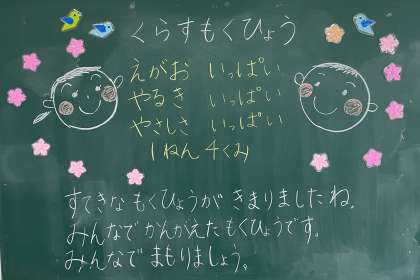 くらすもくひょう
えがお いっぱい
やるき いっぱい
やさしさ いっぱい
1ねん4くみ
すてきな もくひょうが きまりましたね。
みんなで かんがえた もくひょうです。
みんなで まもりましょう。